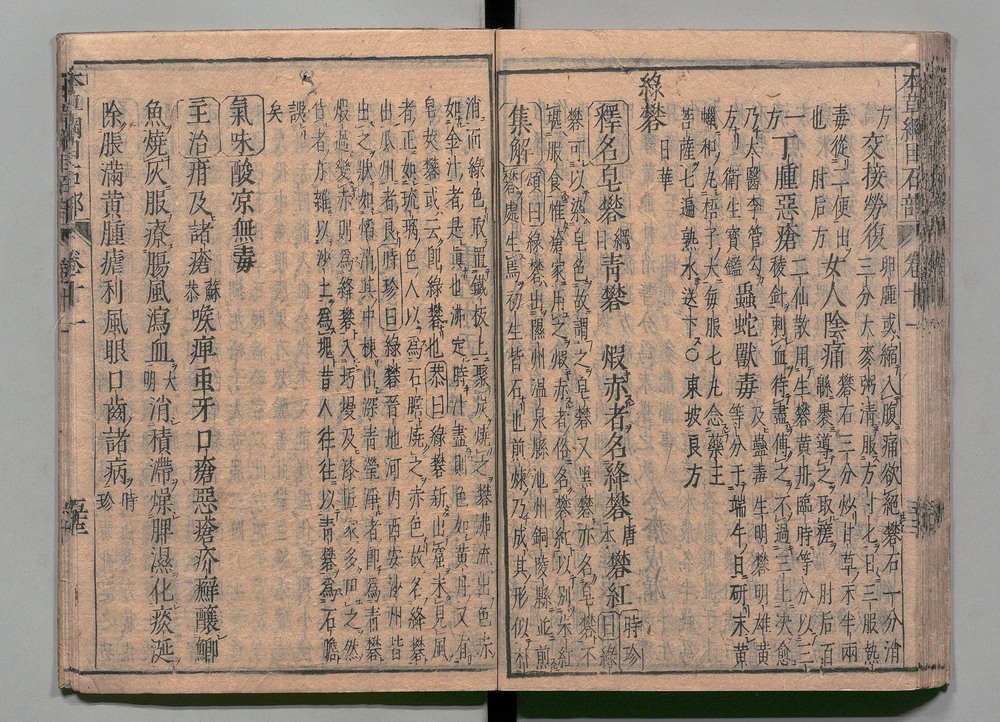 本草綱目石部 卷十一
方
交接勞復 卵腫或縮入腹痛欲絕礬石一分消
三分大麥粥清服方寸匕日三服熱
毒從二便出
也 肘后方
女人陰痛 礬石三分炒甘草末半兩
綿裹導之取瘥 肘后百
一方
丁腫惡瘡 二仙散用生礬黃丹臨時等分以三
稜針刺血待盡傅之不過三上決愈
乃太醫李管勾
方 衛生寶鑑
蟲蛇獸毒 及蠱毒生明礬明雄黃
等分于端午日研末黃
蠟和丸梧子大每服七丸念藥王
菩薩七遍熟水送下○東坡良方
綠礬 日華
釋名 皂礬 綱目 青礬 煅赤者名絳礬 唐本 礬紅 時珍曰綠
礬可以染皂色故謂之皂礬又黑礬亦名皂礬不
堪服食惟瘡家用之煅赤者俗名礬紅以別朱紅
集解 頌曰綠礬出隰州溫泉縣池州銅陵縣並煎
礬處生焉初生皆石也前煉乃成其形似朴
消而綠色取置鐵板上聚炭燒之礬沸流出色赤
如金汁者是眞也沸定時汁盡則色如黃丹又有
皂莢礬或云卽綠礬也恭曰綠礬新出窟未見風
者正如琉璃色人以爲石膽燒之赤色故名絳礬
出瓜州者良時珍曰綠礬晉地河內西安沙州皆
出之狀如焰消其中揀出深青瑩淨者卽爲青礬
煅過變赤則爲絳礬入圬墁及漆匠家多用之然
貨者亦雜以沙土爲塊昔人往往以青礬爲石膽
誤
矣
氣味 酸凉無毒
主治 疳及諸瘡 蘇恭 喉痺䖝牙口瘡惡瘡疥癬釀鯽
魚燒灰服療腸風瀉血 大明 消積滯燥脾濕化痰涎
除脹滿黃腫瘧利風眼口齒諸病 時珍
本草綱目石部 卷十一